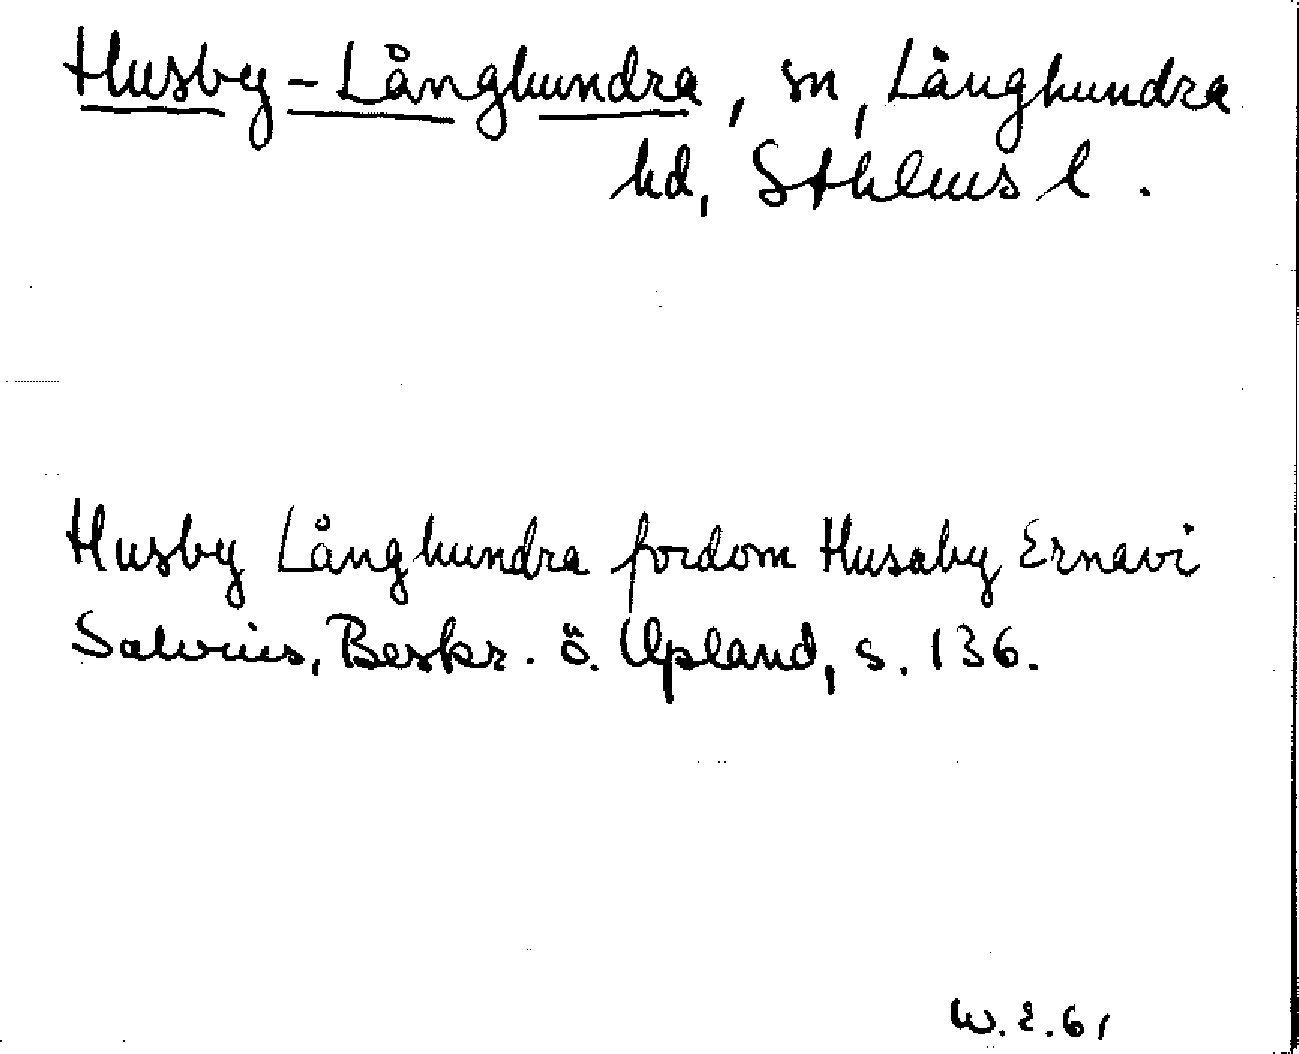 Husby-Långhundra, sn, Långhundra
hd, Sthlms l.
Husby Långhundra fordom Husaby Ernavi
Salvius, Beskr. ö. Upland, s. 136.
W.E.61